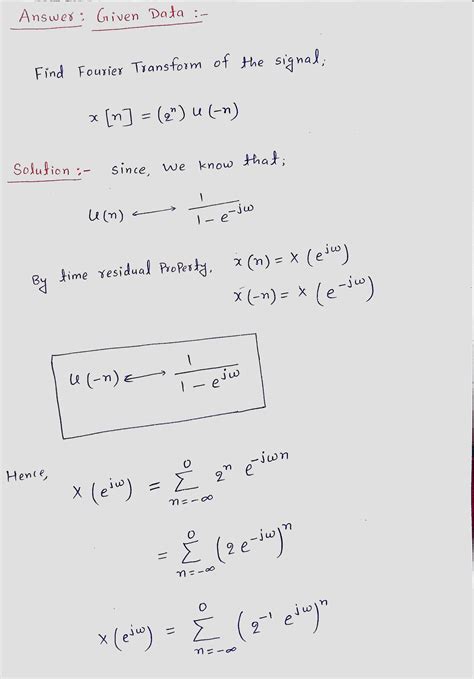 Answer: Given Data :-
Find Fourier Transform of the signal;
x[n] = (2ⁿ) u(-n)
Solution :- since, we know that;
u(n) ⟷ 1 / (1 - e^-jω)
By time residual Property, x(n) = X(e^jω)
x(-n) = X(e^-jω)
u(-n) ⟷ 1 / (1 - e^jω)
Hence, X(e^jω) = Σ_{n=-∞}^{0} 2ⁿ e^-jωn
= Σ_{n=-∞}^{0} (2 e^-jω)ⁿ
X(e^jω) = Σ_{n=-∞}^{0} (2^-1 e^jω)ⁿ